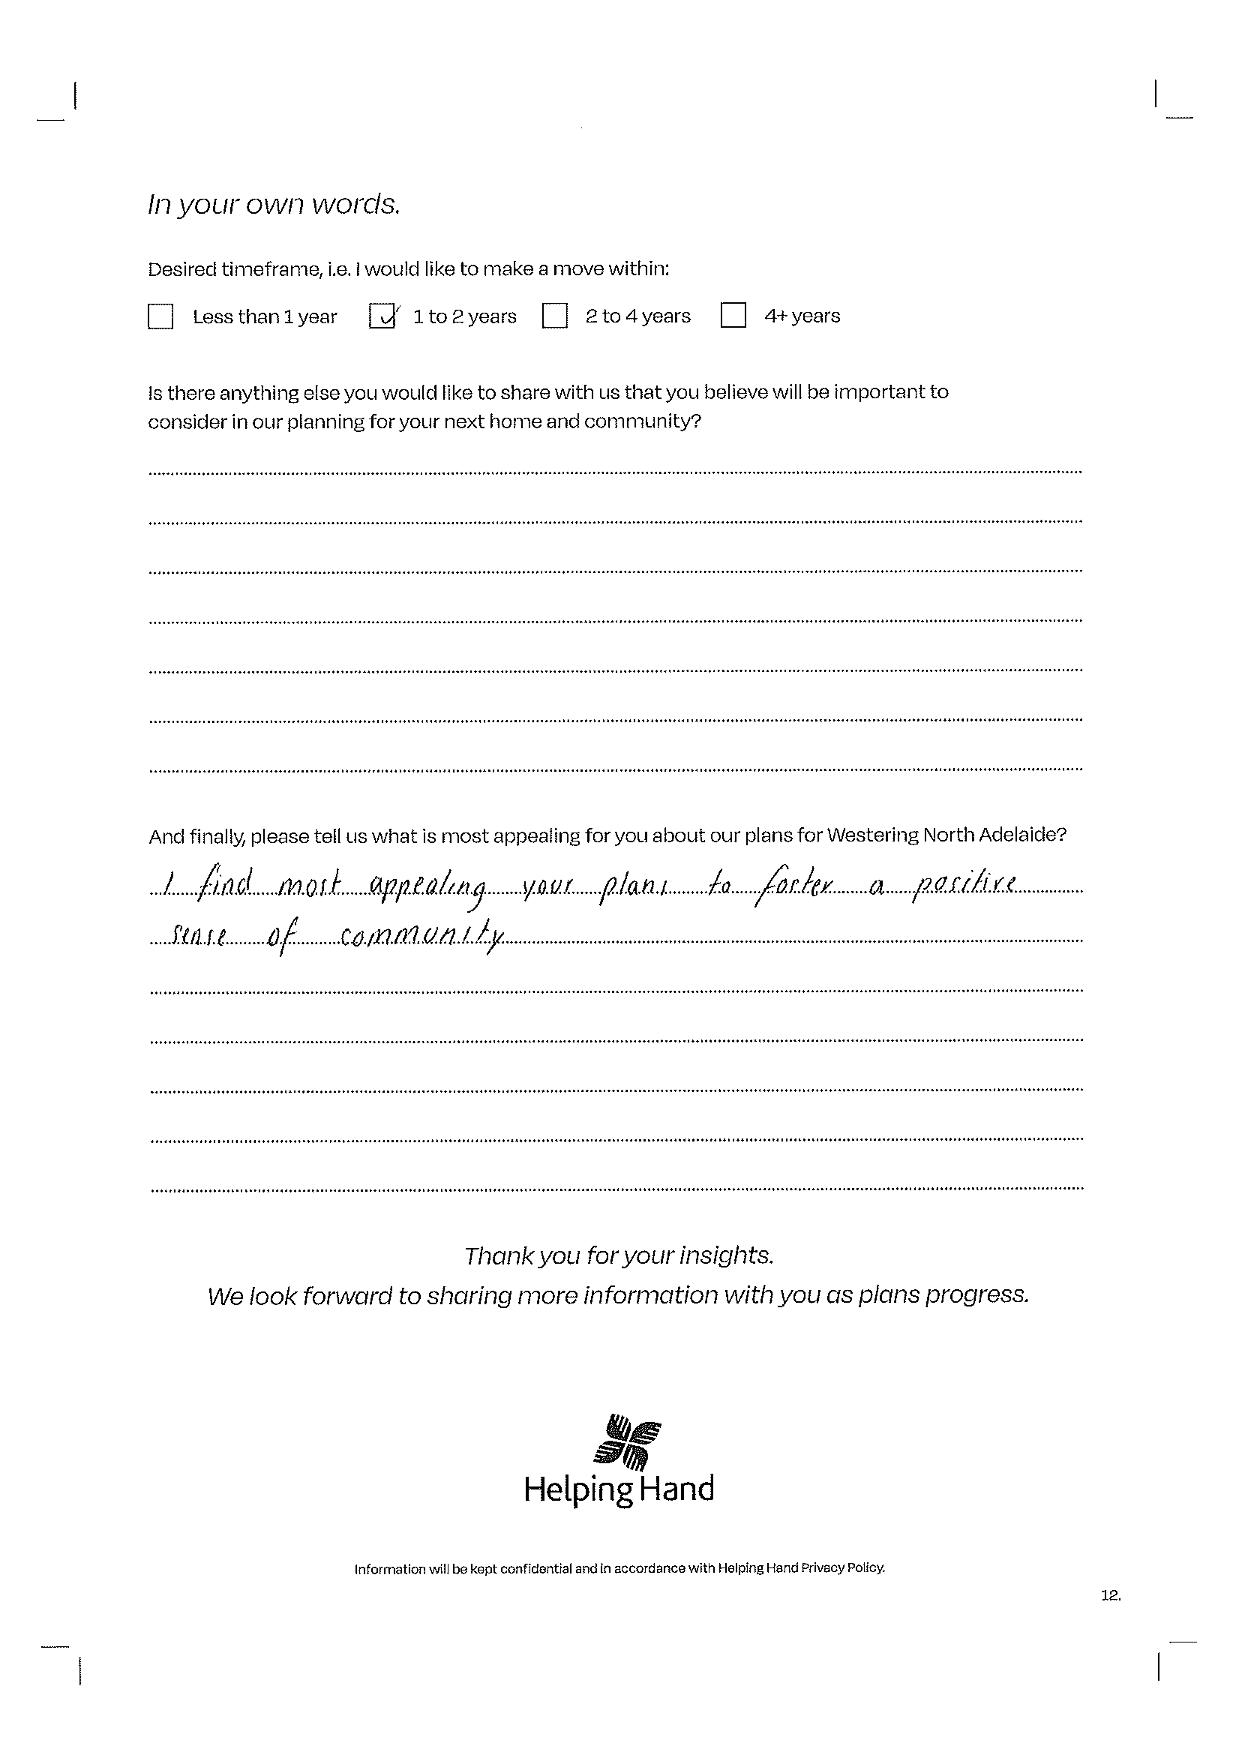 In your own words.
Desired timeframe, i.e. I would like to make a move within:
Less than 1 year 1 to 2 years 2 to 4 years 4+ years
Is there anything else you would like to share with us that you believe will be important to
consider in our planning for your next home and community?
And finally, please tell us what is most appealing for you about our plans for Westering North Adelaide?
I find most appealing your plans to foster a positive
sense of community
Thank you for your insights.
We look forward to sharing more information with you as plans progress.
Helping Hand
Information will be kept confidential and in accordance with Helping Hand Privacy Policy.
12.